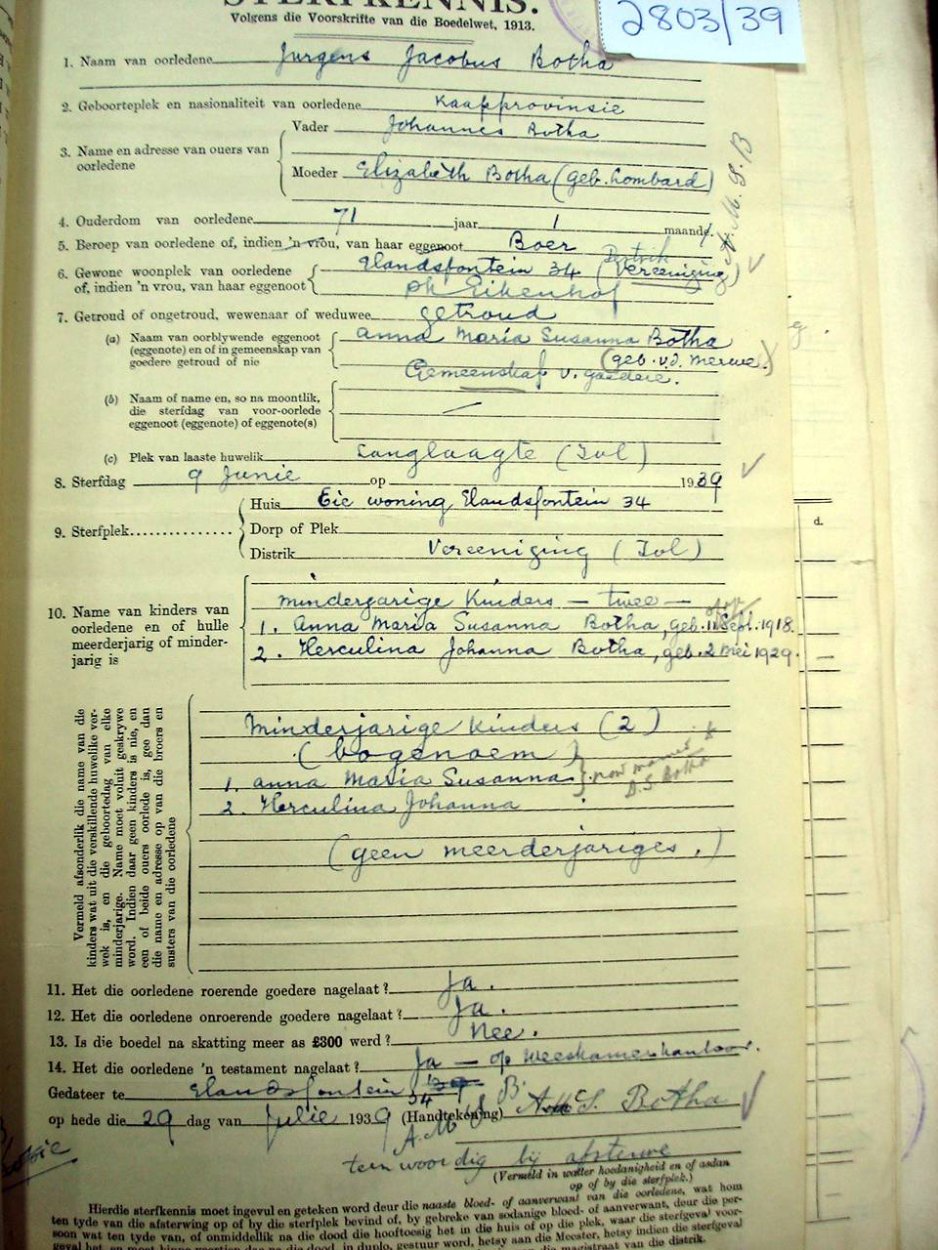 STERFKENNIS.
2803/39
Volgens die Voorskrifte van die Boedelwet, 1913.
1. Naam van oorledene Jurgens Jacobus Botha
2. Geboorteplek en nasionaliteit van oorledene Kaapprovinsie
3. Name en adresse van ouers van oorledene
Vader Johannes Botha
Moeder Elizabeth Botha (geb. Lombard)
4. Ouderdom van oorledene 71 jaar 1 maande.
A.M.S.B
5. Beroep van oorledene of, indien 'n vrou, van haar eggenoot Boer
Distrik
6. Gewone woonplek van oorledene Elandsfontein 34 (Vereeniging)
of, indien 'n vrou, van haar eggenoot ph Eikenhof
7. Getroud of ongetroud, wewenaar of weduwee. getroud
(a) Naam van oorblywende eggenoot (eggenote) en of in gemeenskap van goedere getroud of nie
Anna Maria Susanna Botha
(geb. v.d. Merwe.)
Gemeenskap v. goedere.
(b) Naam of name en, so na moontlik, die sterfdag van voor-oorlede eggenoot (eggenote) of eggenote(s) —
(c) Plek van laaste huwelik Langlaagte (Tvl)
8. Sterfdag 9 Junie op 1939
9. Sterfplek
Huis Eie woning Elandsfontein 34
Dorp of Plek
Distrik Vereeniging (Tvl)
d.
10. Name van kinders van oorledene en of hulle meerderjarig of minderjarig is
minderjarige Kinders — twee —
1. Anna Maria Susanna Botha, geb. 11 Sept. 1918.
2. Herculina Johanna Botha, geb. 2 Mei 1929.
Vermeld afsonderlik die name van die
kinders wat uit die verskillende huwelike ver-
wek is, en die geboortedag van elke
minderjarige. Name moet voluit geskrywe
word. Indien daar geen kinders is nie, en
een of beide ouers oorlede is, gee dan
die name en adresse op van die broers en
susters van die oorledene
Minderjarige Kinders (2)
(bogenoem)
1. Anna Maria Susanna } now married to
D.S Botha
2. Herculina Johanna
(geen meerderjariges.)
11. Het die oorledene roerende goedere nagelaat? Ja.
12. Het die oorledene onroerende goedere nagelaat? Ja.
13. Is die boedel na skatting meer as £300 werd? Nee.
14. Het die oorledene 'n testament nagelaat? Ja — op Weeskamerkantoor.
Gedateer te Elandsfontein 34
op hede die 29 dag van Julie 1939 (Handtekening) A.M.S. Botha
A.M.S.B
teenwoordig by afsterwe
(Vermeld in watter hoedanigheid en of asdan
op of by die sterfplek.)
Hierdie sterfkennis moet ingevul en geteken word deur die naaste bloed- of aanverwant van die oorledene, wat hom
ten tyde van die afsterwing op of by die sterfplek bevind of, by gebreke van sodanige bloed- of aanverwant, deur die per-
soon wat ten tyde van, of onmiddellik na die dood die hooftoesig het in die huis of op die plek, waar die sterfgeval voor-